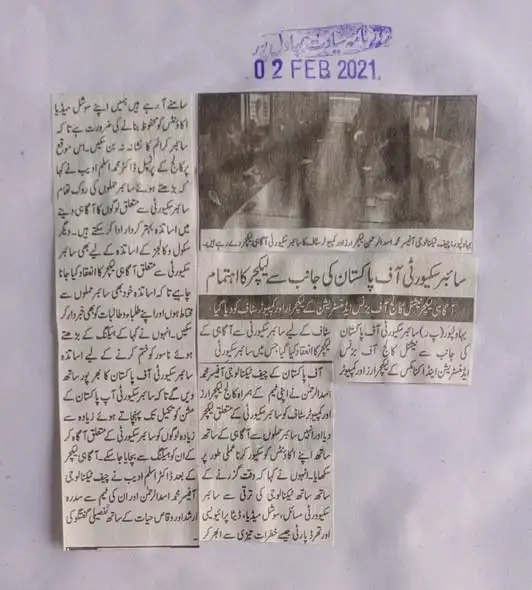 روزنامہ سیادت بہاولپور
02 FEB 2021.
بہاولپور: چیف ٹیکنالوجی آفیسر محمد اسدالرحمن لیکچررز اور کمپیوٹر سٹاف کو سائبر سکیورٹی آگاہی لیکچر دے رہے ہیں۔
سائبر سکیورٹی آف پاکستان کی جانب سے لیکچر کا اہتمام
آگاہی لیکچر نیشنل کالج آف بزنس ایڈمنسٹریشن کے لیکچرار اور کمپیوٹر سٹاف کو دیا گیا
بہاولپور (پ ر) سائبر سکیورٹی آف پاکستان
کی جانب سے نیشنل کالج آف بزنس
ایڈمنسٹریشن اینڈ اکنامکس کے لیکچررز اور کمپیوٹر
سٹاف کے لیے سائبر سکیورٹی سے آگاہی کے
لیکچر کا انعقاد کیا گیا جس میں سائبر سکیورٹی
آف پاکستان کے چیف ٹیکنالوجی آفیسر محمد
اسدالرحمن نے اپنی ٹیم کے ہمراہ کالج لیکچررز
اور کمپیوٹر سٹاف کو سائبر سکیورٹی کے متعلق لیکچر
دیا اور انہیں سائبر حملوں سے آگاہی کے ساتھ
ساتھ اپنے اکاؤنٹس کو سکیور کرنا عملی طور پر
سکھایا۔ انہوں نے کہا کہ وقت گزرنے کے
ساتھ ساتھ ٹیکنالوجی کی ترقی سے سائبر
سکیورٹی مسائل، سوشل میڈیا، ڈیٹا پرائیویسی
اور تھرڈ پارٹی جیسے خطرات تیزی سے ابھر کر
سامنے آ رہے ہیں ہمیں اپنے سوشل میڈیا
اکاؤنٹس کو محفوظ بنانے کی ضرورت ہے تاکہ
سائبر کرائم کا نشانہ نہ بن سکیں۔ اس موقع
پر کالج کے پرنسپل ڈاکٹر محمد اسلم ادیب نے کہا
کہ بڑھتے ہوئے سائبر حملوں کی روک تھام
سائبر سکیورٹی سے متعلق لوگوں کو آگاہی دینے
میں اساتذہ بہتر کردار ادا کر سکتے ہیں۔ دیگر
سکول و کالجز کے اساتذہ کے لیے بھی سائبر
سکیورٹی سے متعلق آگاہی لیکچر کا انعقاد کیا جانا
چاہیے تاکہ اساتذہ خود بھی سائبر حملوں سے
محتاط ہوں اور اپنے طلباء و طالبات کو بھی خبردار کر
سکیں۔ انہوں نے کہا کہ ہیکنگ کے بڑھتے
ہوئے ناسور کو ختم کرنے کے لیے اساتذہ
سائبر سکیورٹی آف پاکستان کا بھر پور ساتھ
دیں گے تاکہ سائبر سکیورٹی آف پاکستان کے
مشن کو تکمیل تک پہنچاتے ہوئے زیادہ سے
زیادہ لوگوں کو سائبر سکیورٹی کے متعلق آگاہ کر
کے ان کو ہیکنگ سے بچایا جا سکے۔ آگاہی لیکچر
کے بعد ڈاکٹر اسلم ادیب نے چیف ٹیکنالوجی
آفیسر محمد اسدالرحمن اور ان کی ٹیم سے سدرہ
ارشد اور وقاص حیات کے ساتھ تفصیلی گفتگو کی